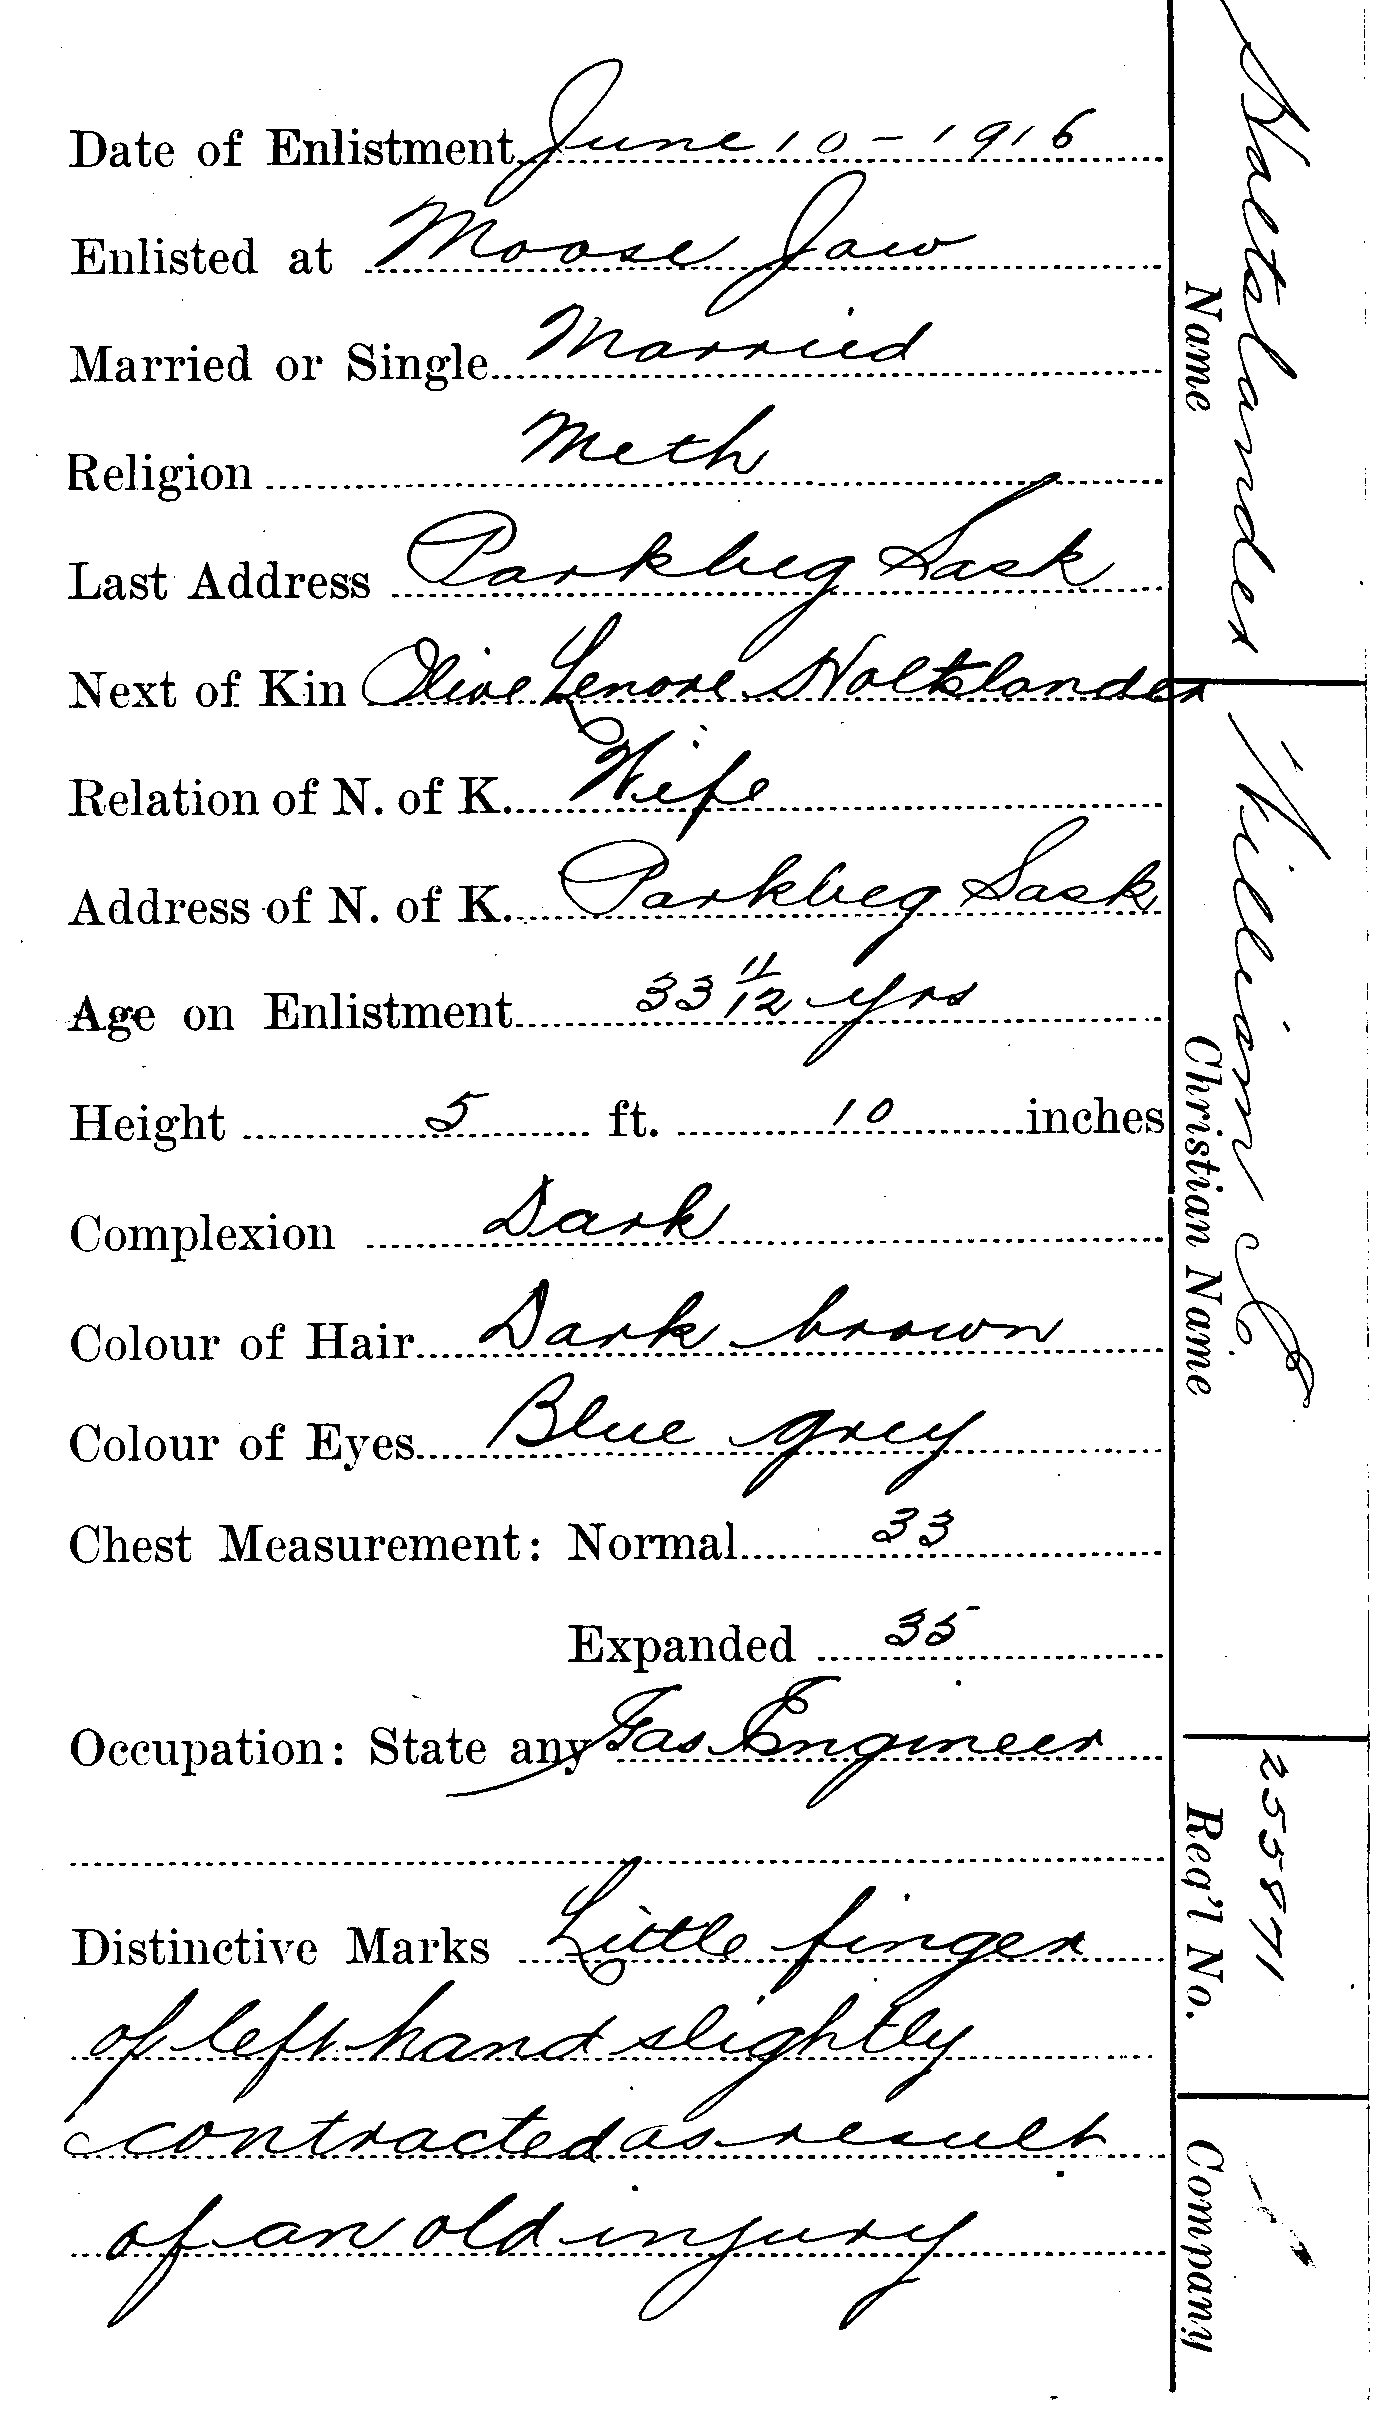 Date of Enlistment June 10 - 1916
Enlisted at Moose Jaw
Married or Single Married
Religion Meth
Last Address Parkbeg Sask
Next of Kin Olive Lenore Holtslander
Relation of N. of K. Wife
Address of N. of K. Parkbeg Sask
Age on Enlistment 33 11/12 yrs
Height 5 ft. 10 inches
Complexion Dark
Colour of Hair Dark brown
Colour of Eyes Blue grey
Chest Measurement: Normal 33
Expanded 35
Occupation: State any Gas Engineer
Distinctive Marks Little finger
of left hand slightly
contracted as result
of an old injury
Holtslander
Name
William
Christian Name
255871
Reg'l No.
Company